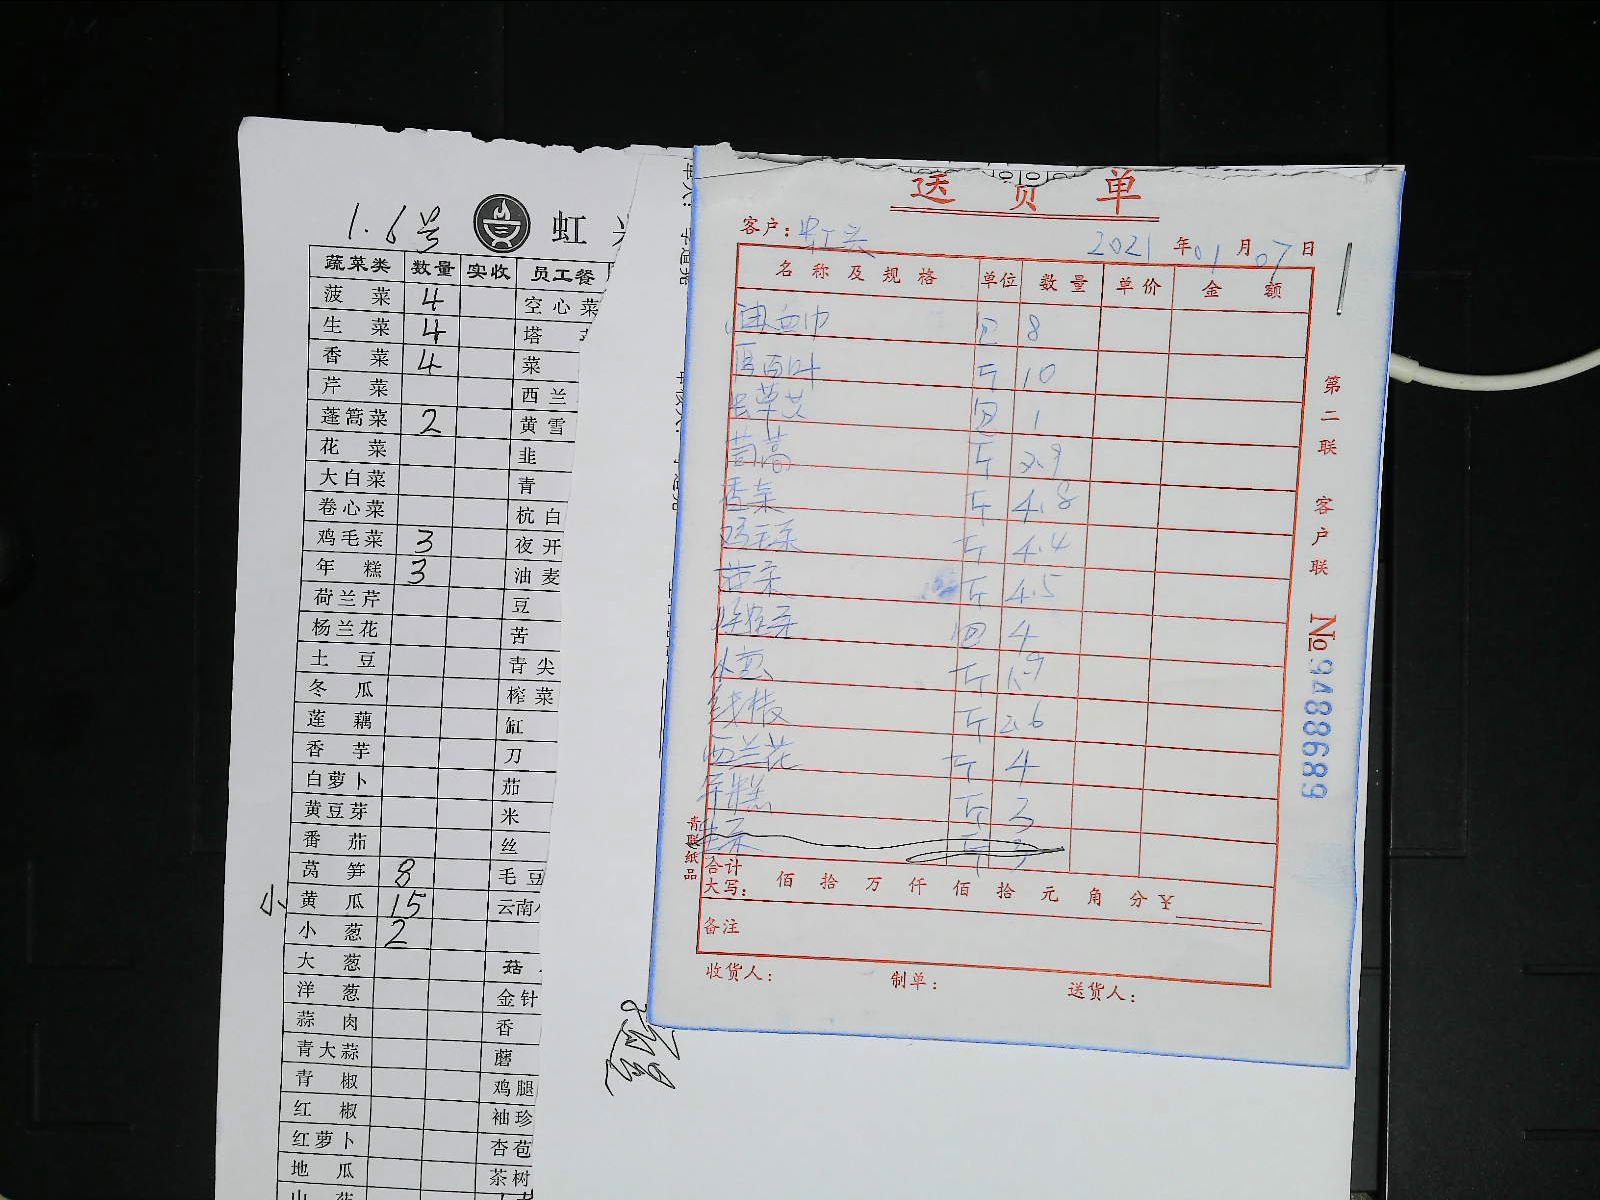 1.6号
虹
蔬菜类 数量 实收 员工餐
菠菜 4 空心菜
生菜 4 塔
香菜 4 菜
芹菜 西兰
蓬篙菜 2 黄雪
花菜 韭
大白菜 青
卷心菜 杭白
鸡毛菜 3 夜开
年糕 3 油麦
荷兰芹 豆
杨兰花 苦
土豆 青尖
冬瓜 榨菜
莲藕 缸
香芋 刀
白萝卜 茄
黄豆芽 米
番茄 丝
莴笋 8 毛豆
小 黄瓜 15 云南
小葱 2
大葱 菇
洋葱 金针
蒜肉 香
青大蒜 蘑
青椒 鸡腿
红椒 袖珍
红萝卜 杏苞
地瓜 茶树
送货单
客户：虹兴 2021年01月07日
名称及规格 单位 数量 单价 金额
8
百叶 斤 10
虫草 1
茼蒿 斤 2.9
香菜 斤 4.8
鸡毛菜 斤 4.4
菠菜 斤 4.5
4
小葱 斤 1.9
斤 2.6
西兰花 斤 4
年糕 斤 3
生菜 斤 3
合计
大写： 佰拾万仟佰拾元角分￥
备注
收货人： 制单： 送货人：
第二联 客户联
№9488689
青联纸品